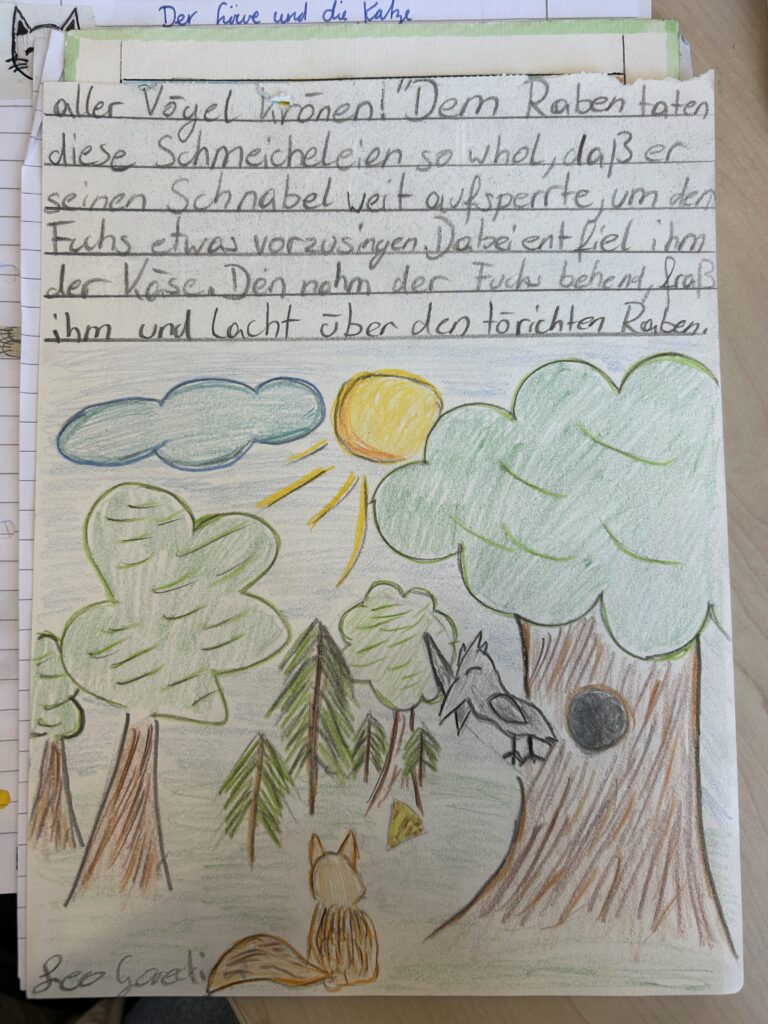 Der Löwe und die Katze
aller Vögel krönen!" Dem Raben taten
diese Schmeicheleien so whol, daß er
seinen Schnabel weit aufsperrte, um den
Fuchs etwas vorzusingen. Dabei entfiel ihm
der Käse. Den nahm der Fuchs behend, fraß
ihm und lacht über den törichten Raben.
Leo